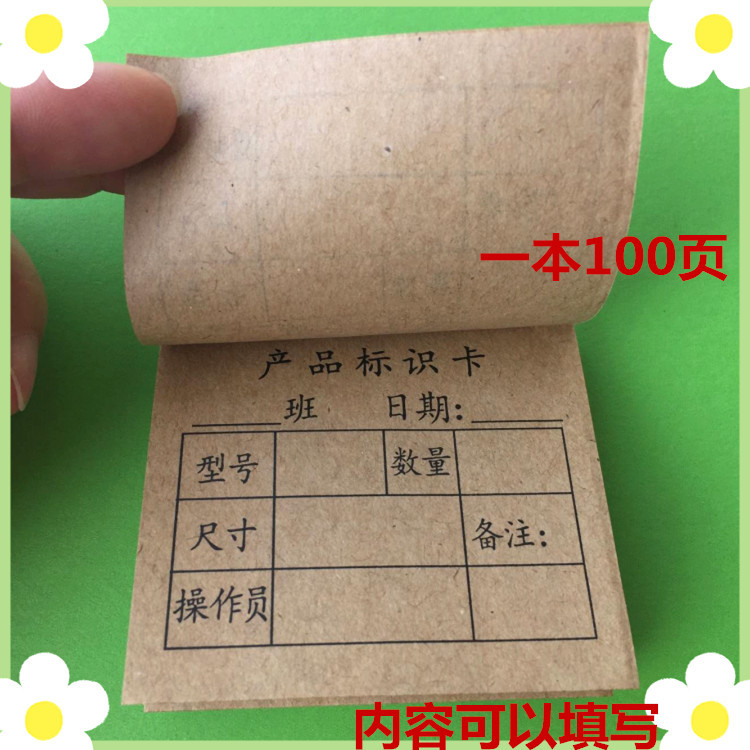 一本100页
产品标识卡
_____班 日期:_____
型号 数量
尺寸 备注:
操作员
内容可以填写